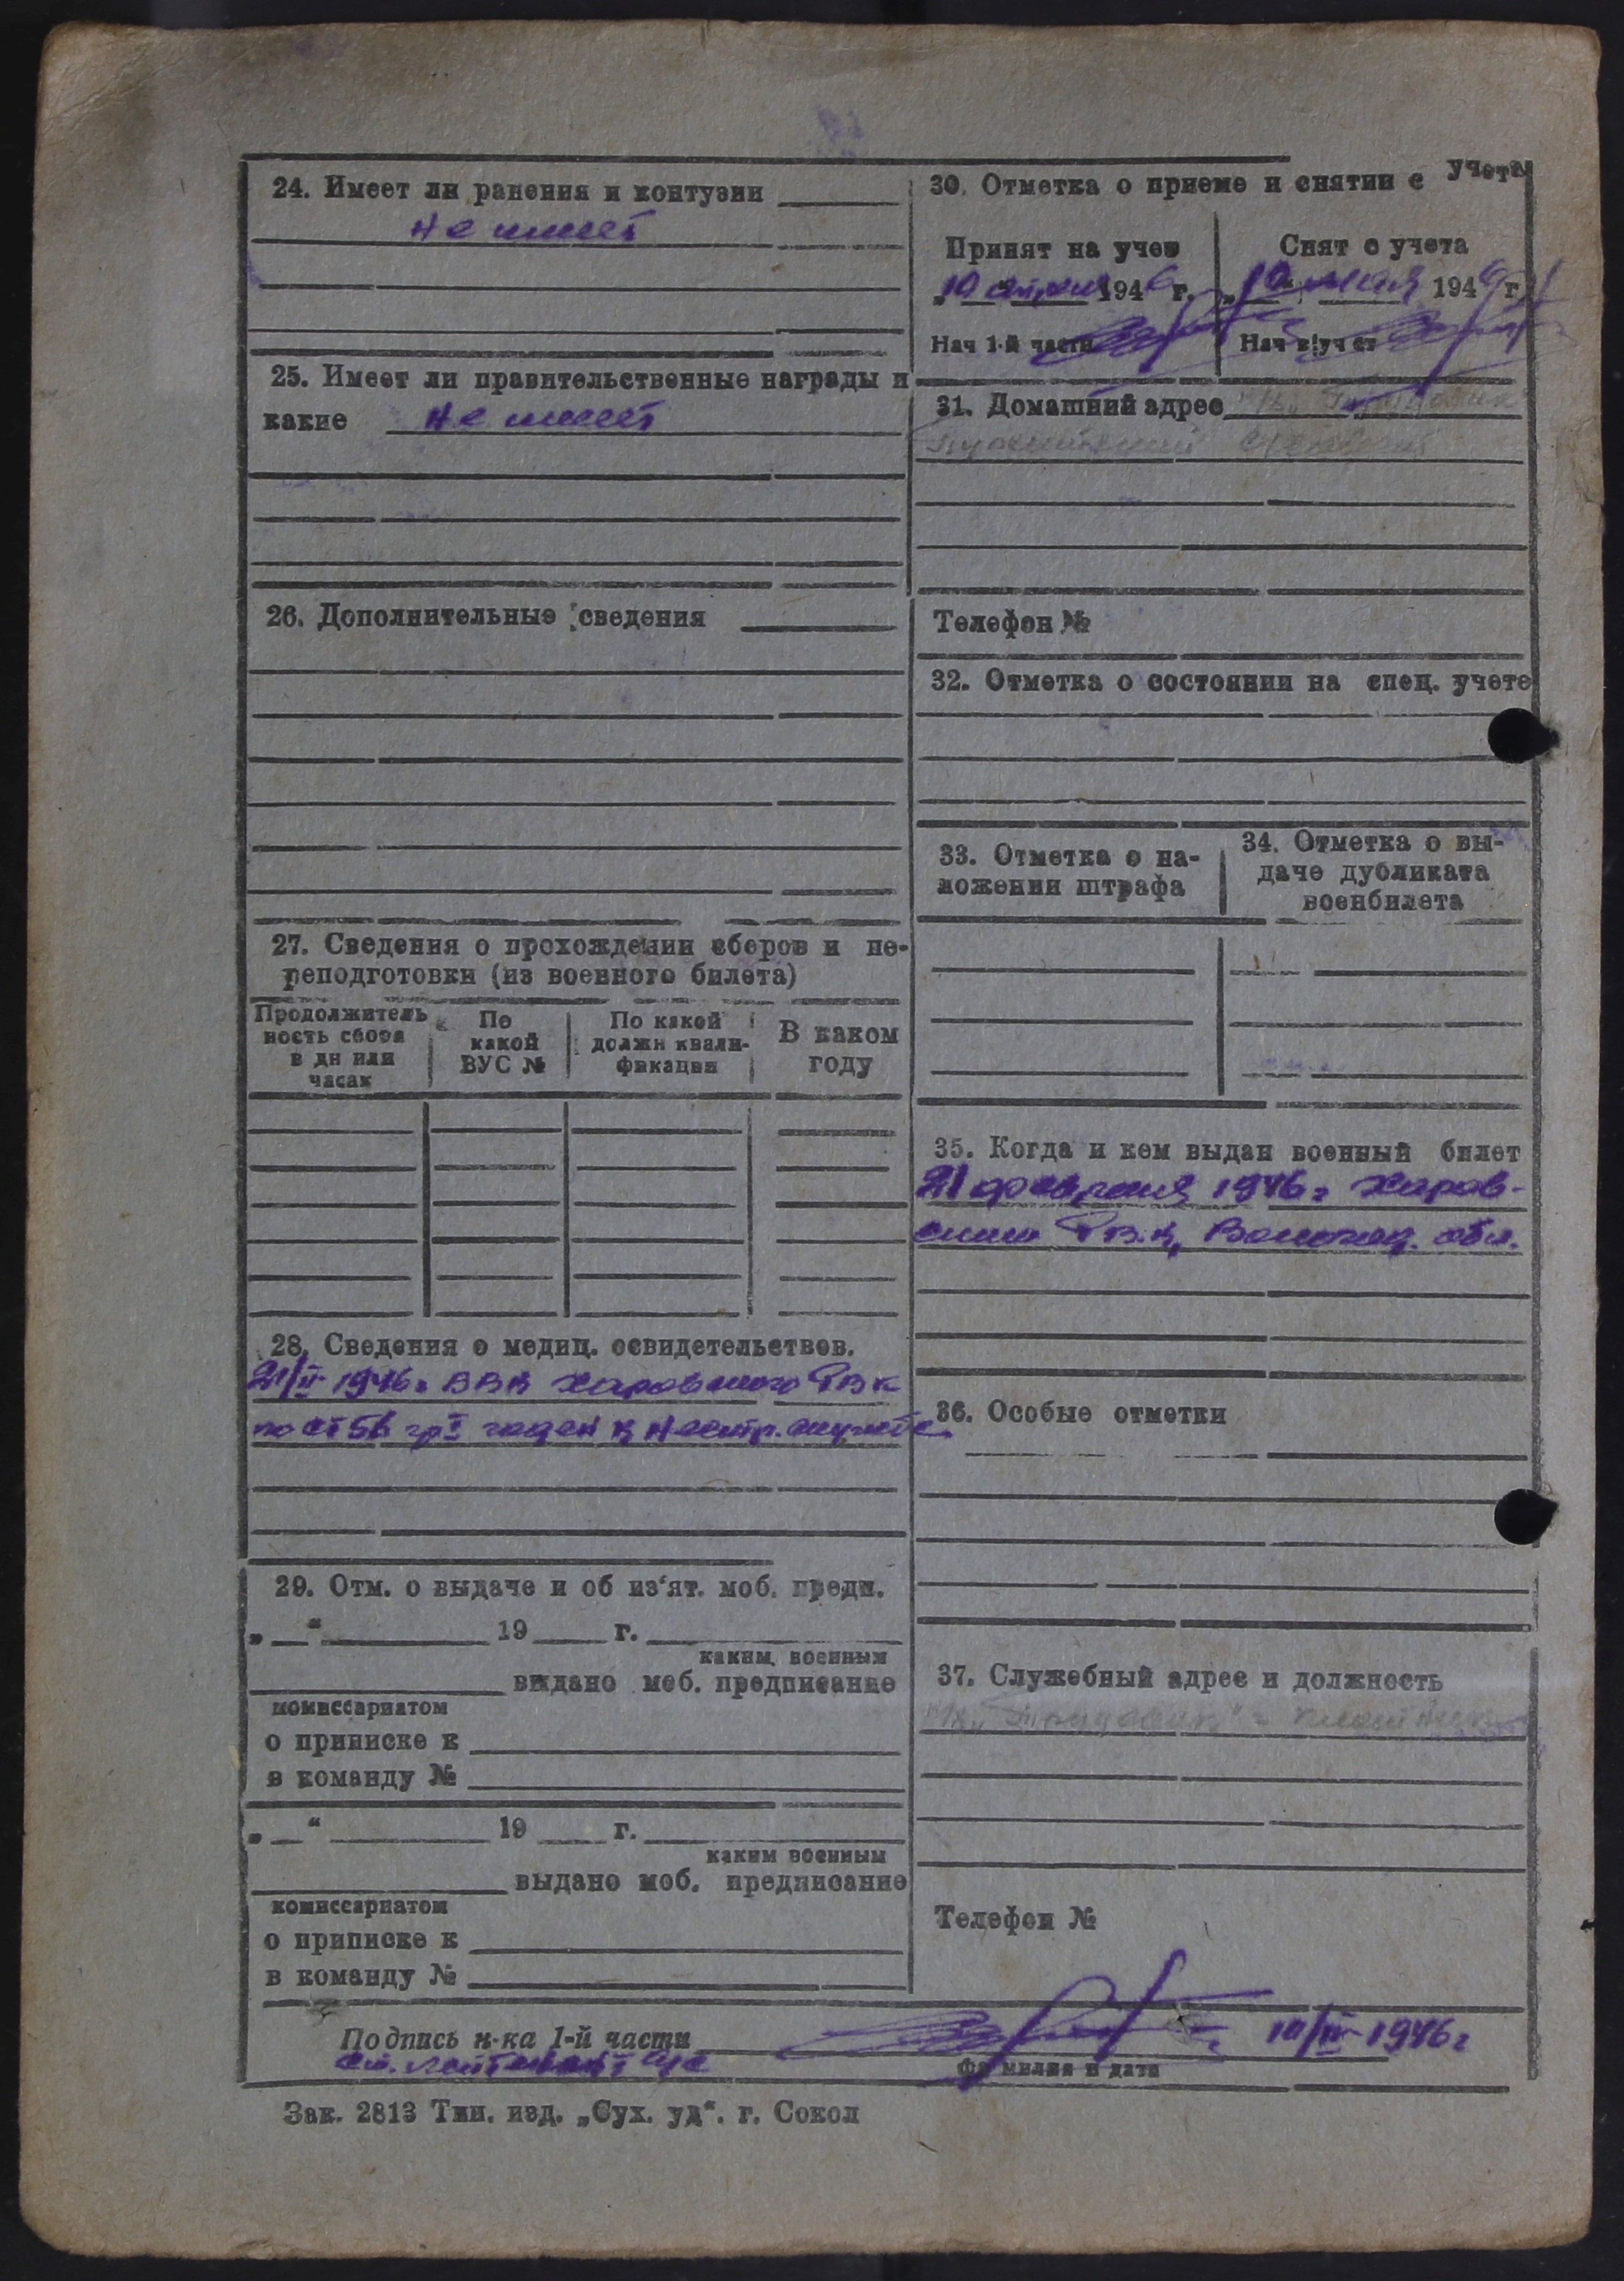 24. Имеет ли ранения и контузии
не имеет
25. Имеет ли правительственные награды и
какие не имеет
26. Дополнительные сведения
27. Сведения о прохождении сборов и пе-
реподготовки (из военного билета)
Продолжитель
ность сбора
в дн или
часах
По
какой
ВУС №
По какой
должн квали-
фикации
В каком
году
28. Сведения о медиц. освидетельствов.
21/II 1946г ВВК Харовского РВК
по ст 5б гр I годен к нестр. службе.
29. Отм. о выдаче и об из‘ят. моб. предп.
„ “ 19 г.
каким военным
выдано моб. предписание
комиссариатом
о приписке к
в команду №
„ “ 19 г.
каким военным
выдано моб. предписание
комиссариатом
о приписке к
в команду №
30. Отметка о приеме и снятии с учета
Принят на учет
„10 апреля 1946 г.
Нач 1-й части
Снят с учета
„10“ мая 194 г
Нач в/уч ст
31. Домашний адрес
Телефон №
32. Отметка о состоянии на спец. учете
33. Отметка о на-
ложении штрафа
34. Отметка о вы-
даче дубликата
военбилета
35. Когда и кем выдан военный билет
21 февраля 1946г Харов-
ским РВК, Вологод. обл.
36. Особые отметки
37. Служебный адрес и должность
"Трудовик"
Телефон №
Подпись н-ка 1-й части
10/IV-1946г
ст. лейтенант
Фамилия и дата
Зак. 2813 Тип. изд. „Сух. уд“. г. Сокол